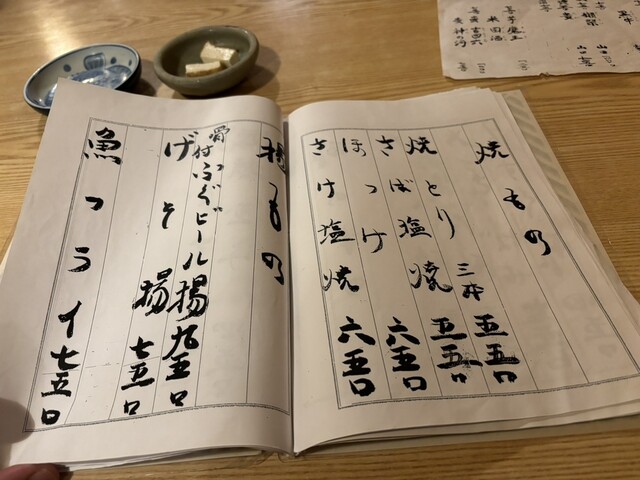 焼もの
焼とり 三本 五五〇
さば塩焼 五五〇
ほっけ 六五〇
さけ塩焼 六五〇
揚もの
骨付ふぐビール揚 九五〇
げそ揚 七五〇
魚フライ 七五〇